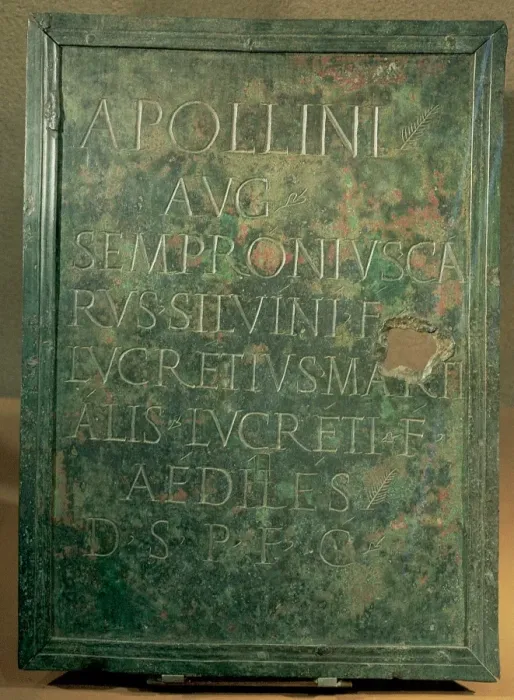 APOLLINI
AVG
SEMPRONIVS CA
RVS·SILVÍNI·F
LVCRETIVS·MARTI
ÁLIS·LVCRÉTI·F·
AÉDILÉS
D·S·P·F·C